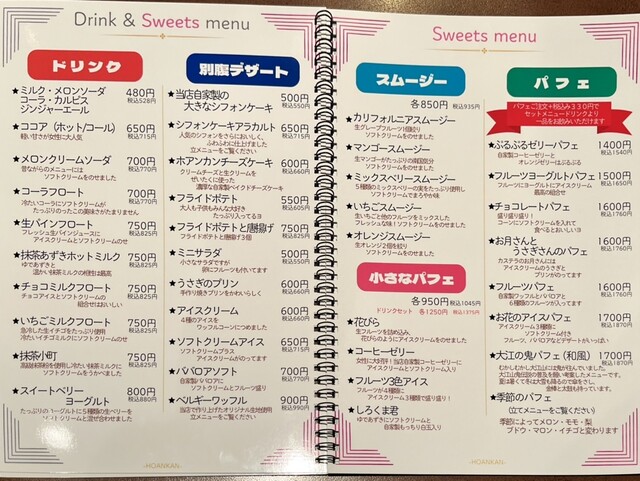 Drink & Sweets menu
ドリンク
★ミルク・メロンソーダ 480円
コーラ・カルピス 税込528円
ジンジャーエール
★ココア(ホット/コール) 650円
軽い甘さが女性に大人気 税込715円
★メロンクリームソーダ 700円
昔ながらのメロンには 税込770円
ソフトクリームをのせました
★コーラフロート 700円
冷たいコーラにソフトクリームが 税込770円
たっぷりのったこの美味さがたまりません
★生パインフロート 750円
フレッシュ生パインジュースに 税込825円
アイスクリームとソフトクリームのせ
★抹茶あずきホットミルク 750円
ゆであずきと 税込825円
温かい抹茶ミルクの相性は最高
★チョコミルクフロート 750円
チョコアイスとソフトクリームの 税込825円
組合せはおいしい
★いちごミルクフロート 750円
急冷した生イチゴをたっぷり使用 税込825円
冷たいイチゴミルクにソフトクリームのせ
★抹茶小町 750円
高級抹茶粉を使用した冷たい抹茶ミルクに 税込825円
ソフトクリームをうかべました
★スイートベリー 800円
ヨーグルト 税込880円
たっぷりのヨーグルトに5種類の生ベリーを
ソフトクリームと混ぜ合わせました
別腹デザート
★当店自家製の 500円
大きなシフォンケーキ 税込550円
★シフォンケーキアラカルト 650円
人気のシフォンをさらにおいしく、 税込715円
ふわふわに仕上げました
立メニューをご覧ください
★ホアンカンチーズケーキ 600円
クリームチーズと生クリームを 税込660円
ぜいたくに使った
濃厚な自家製ベイクドチーズケーキ
★フライドポテト 550円
大人も子供もみんな大好き 税込605円
たっぷり入ってるヨ
★フライドポテトと唐揚げ 750円
フライドポテトと唐揚げ3個 税込825円
★ミニサラダ 500円
小さなサラダですが 税込550円
卵にフルーツも付いてます
★うさぎのプリン 600円
手作り焼きプリンをかわいらしく 税込660円
★アイスクリーム 600円
4種のアイスを 税込660円
ワッフルコーンにつめました
★ソフトクリームアイス 650円
ソフトクリームプラス 税込715円
アイスクリームのってます
★ババロアソフト 700円
自家製ババロアに 税込770円
ソフトクリームとフルーツ盛り
★ベルギーワッフル 900円
当店で作り上げたオリジナル生地使用 税込990円
立メニューをご覧ください
Sweets menu
スムージー
各850円 税込935円
★カリフォルニアスムージー
生グレープフルーツ1個絞り
ソフトクリームをのせました
★マンゴースムージー
生マンゴーがたっぷりの南国気分
ソフトクリームがのせました
★ミックスベリースムージー
5種類のミックスベリーの実をたっぷり使用し
ソフトクリームでまろやか味
★いちごスムージー
生いちごと他のフルーツをミックスした
フレッシュな味に、ソフトクリームのせ
★オレンジスムージー
生オレンジ2個を絞り
ソフトクリームをのせました
小さなパフェ
各950円 税込1045円
ドリンクセット 各1250円 税込1375円
★花びら
生フルーツを詰め込み、
花びらのようにアイスクリームをのせました
★コーヒーゼリー
女性に大好評!当店自家製コーヒーゼリーに
アイスクリームとソフトクリーム入り
★フルーツ3色アイス
フルーツが4種類に
アイスクリームが3種類で盛りました
★しろくま君
ゆであずきにソフトクリームと
自家製もっちり白玉入り
パフェ
パフェご注文+税込み330円で
セットメニュードリンクより
一品をお飲みいただけます
★ぷるぷるゼリーパフェ 1400円
自家製コーヒーゼリーと 税込1540円
オレンジゼリーはぷるぷる
★フルーツヨーグルトパフェ 1500円
フルーツにヨーグルトにアイスクリーム
最高の組合せ
★チョコレートパフェ 1600円
盛り盛り盛り! 税込1760円
コーンにソフトクリームを入れて
食べるとおいしいヨ
★お月さんと 1600円
うさぎさんのパフェ 税込1760円
カステラのお月さまには
アイスクリームのうさぎと
プリンがのってます
★フルーツパフェ 1600円
自家製ヨーグルトとババロアと 税込1760円
6種類のフルーツが入ってます
★お花のアイスパフェ 1700円
アイスクリーム3種類に 税込1870円
ソフトクリーム付き
フルーツ、ババロアなどデザートがいっぱい
★大江の鬼パフェ(和風) 1700円
むかしむかし大江山には鬼が住んでいました 税込1870円
大江山鬼伝説の普及を願い考案したメニューです。
★季節のパフェ
(立てメニューをご覧ください)
季節によってメロン・モモ・梨
ブドウ・マロン・イチゴと変わります
-HOANKAN-
-HOANKAN-